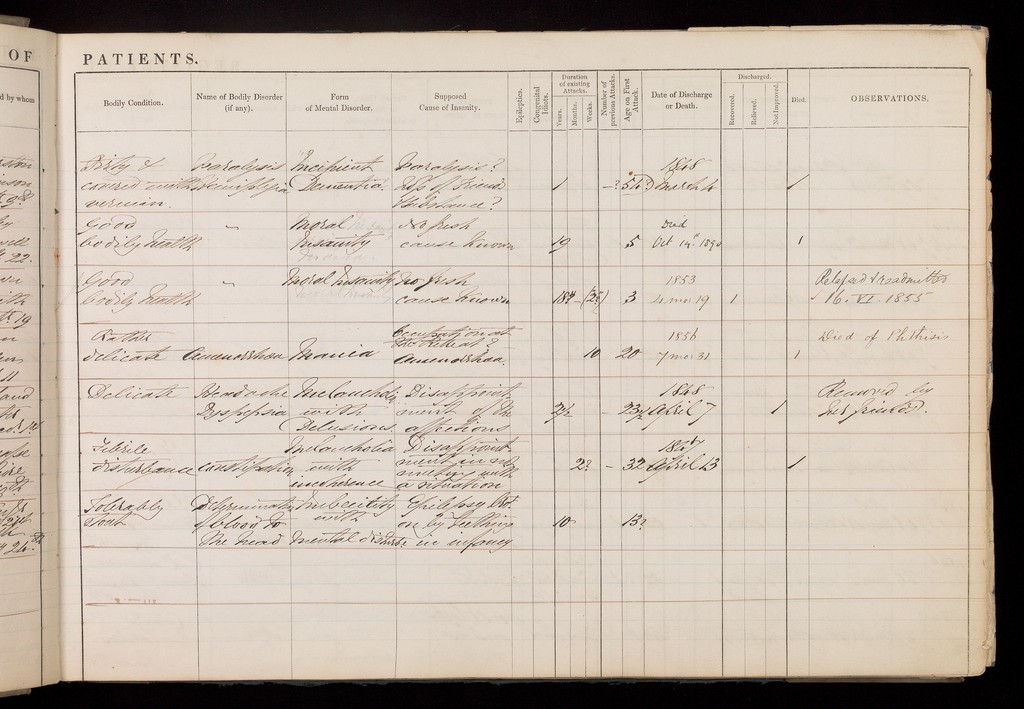 OF
PATIENTS.
d by whom
Bodily Condition.
Name of Bodily Disorder
(if any).
Form
of Mental Disorder.
Supposed
Cause of Insanity.
Epileptics.
Congenital
Idiots.
Duration
of existing
Attacks.
Years.
Months.
Weeks.
Number of
previous Attacks.
Age on First
Attack.
Date of Discharge
or Death.
Discharged.
Recovered.
Relieved.
Not Improved.
Died.
OBSERVATIONS.
Dirty & Paralysis Incipient Paralysis? 1848
covered with Hemiplegia Dementia of friend 1 March 4 1
vermin. Substance?
Good " Moral No fresh Died
bodily health Insanity cause known 19 5 Oct 14th 1890 1
Good " Moral Insanity No fresh 1853 Relapsed & readmitted
bodily health cause known 3 4 mo 19 1 16. VI. 1855
Rather Occupation at 1856 Died of Phthisis
delicate Amenorrhoea Mania the Retreat? 10 20 7 mo 31 1
Amenorrhoea.
Delicate Headache Melancholia Disappoint 1848 Removed by
Dyspepsia with ment of the 2½ - April 7 1 her friends.
Delusions affections
Febrile Melancholia Disappoint-
disturbance constipation with ment in not 2? - 32 April 23 1
incoherence meeting with
a situation
Tolerably Determination Imbecility Epilepsy brot
stout of blood to with on by teething 10 13?
the head mental disturbce in infancy